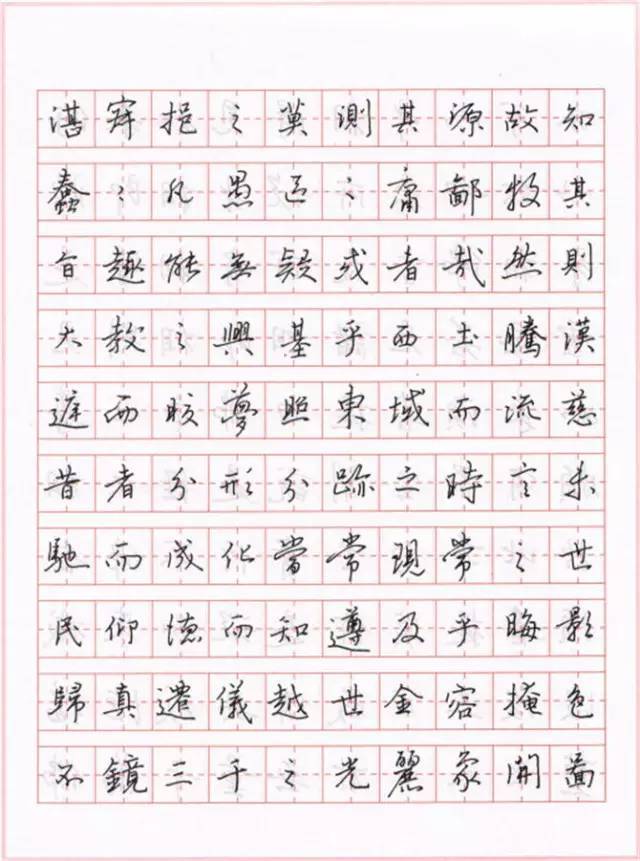 湛寂挹之莫測其源故知
蠢〻凡愚區〻庸鄙投其
旨趣能無疑或者哉然則
大教之興基乎西土騰漢
庭而皎夢照東域而流慈
昔者分形分跡之時言未
馳而成化當常現常之世
民仰德而知遵及乎晦影
歸真遷儀越世金容掩色
不鏡三千之光麗象開圖